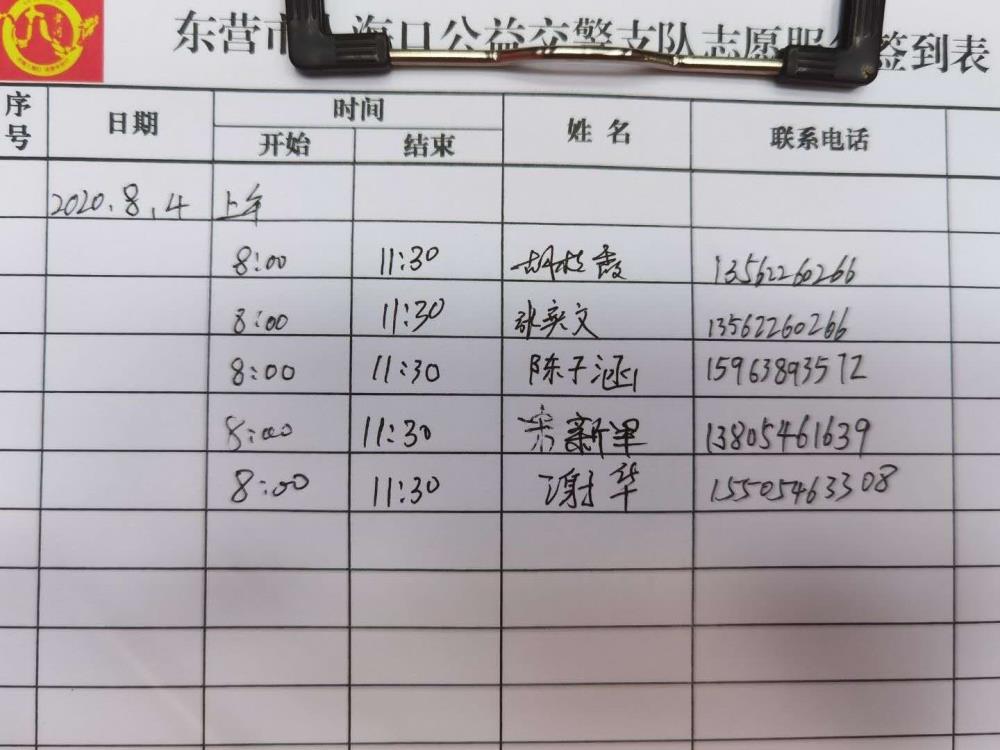 东营市 海口公益交警支队志愿服务签到表
序号 日期 时间 姓名 联系电话
开始 结束
2020.8.4 上午
8:00 11:30 胡 霞 13562260266
8:00 11:30 张奕文 13562260266
8:00 11:30 陈子涵 15963893572
8:00 11:30 宋新 13805461639
8:00 11:30 谢华 15505463308